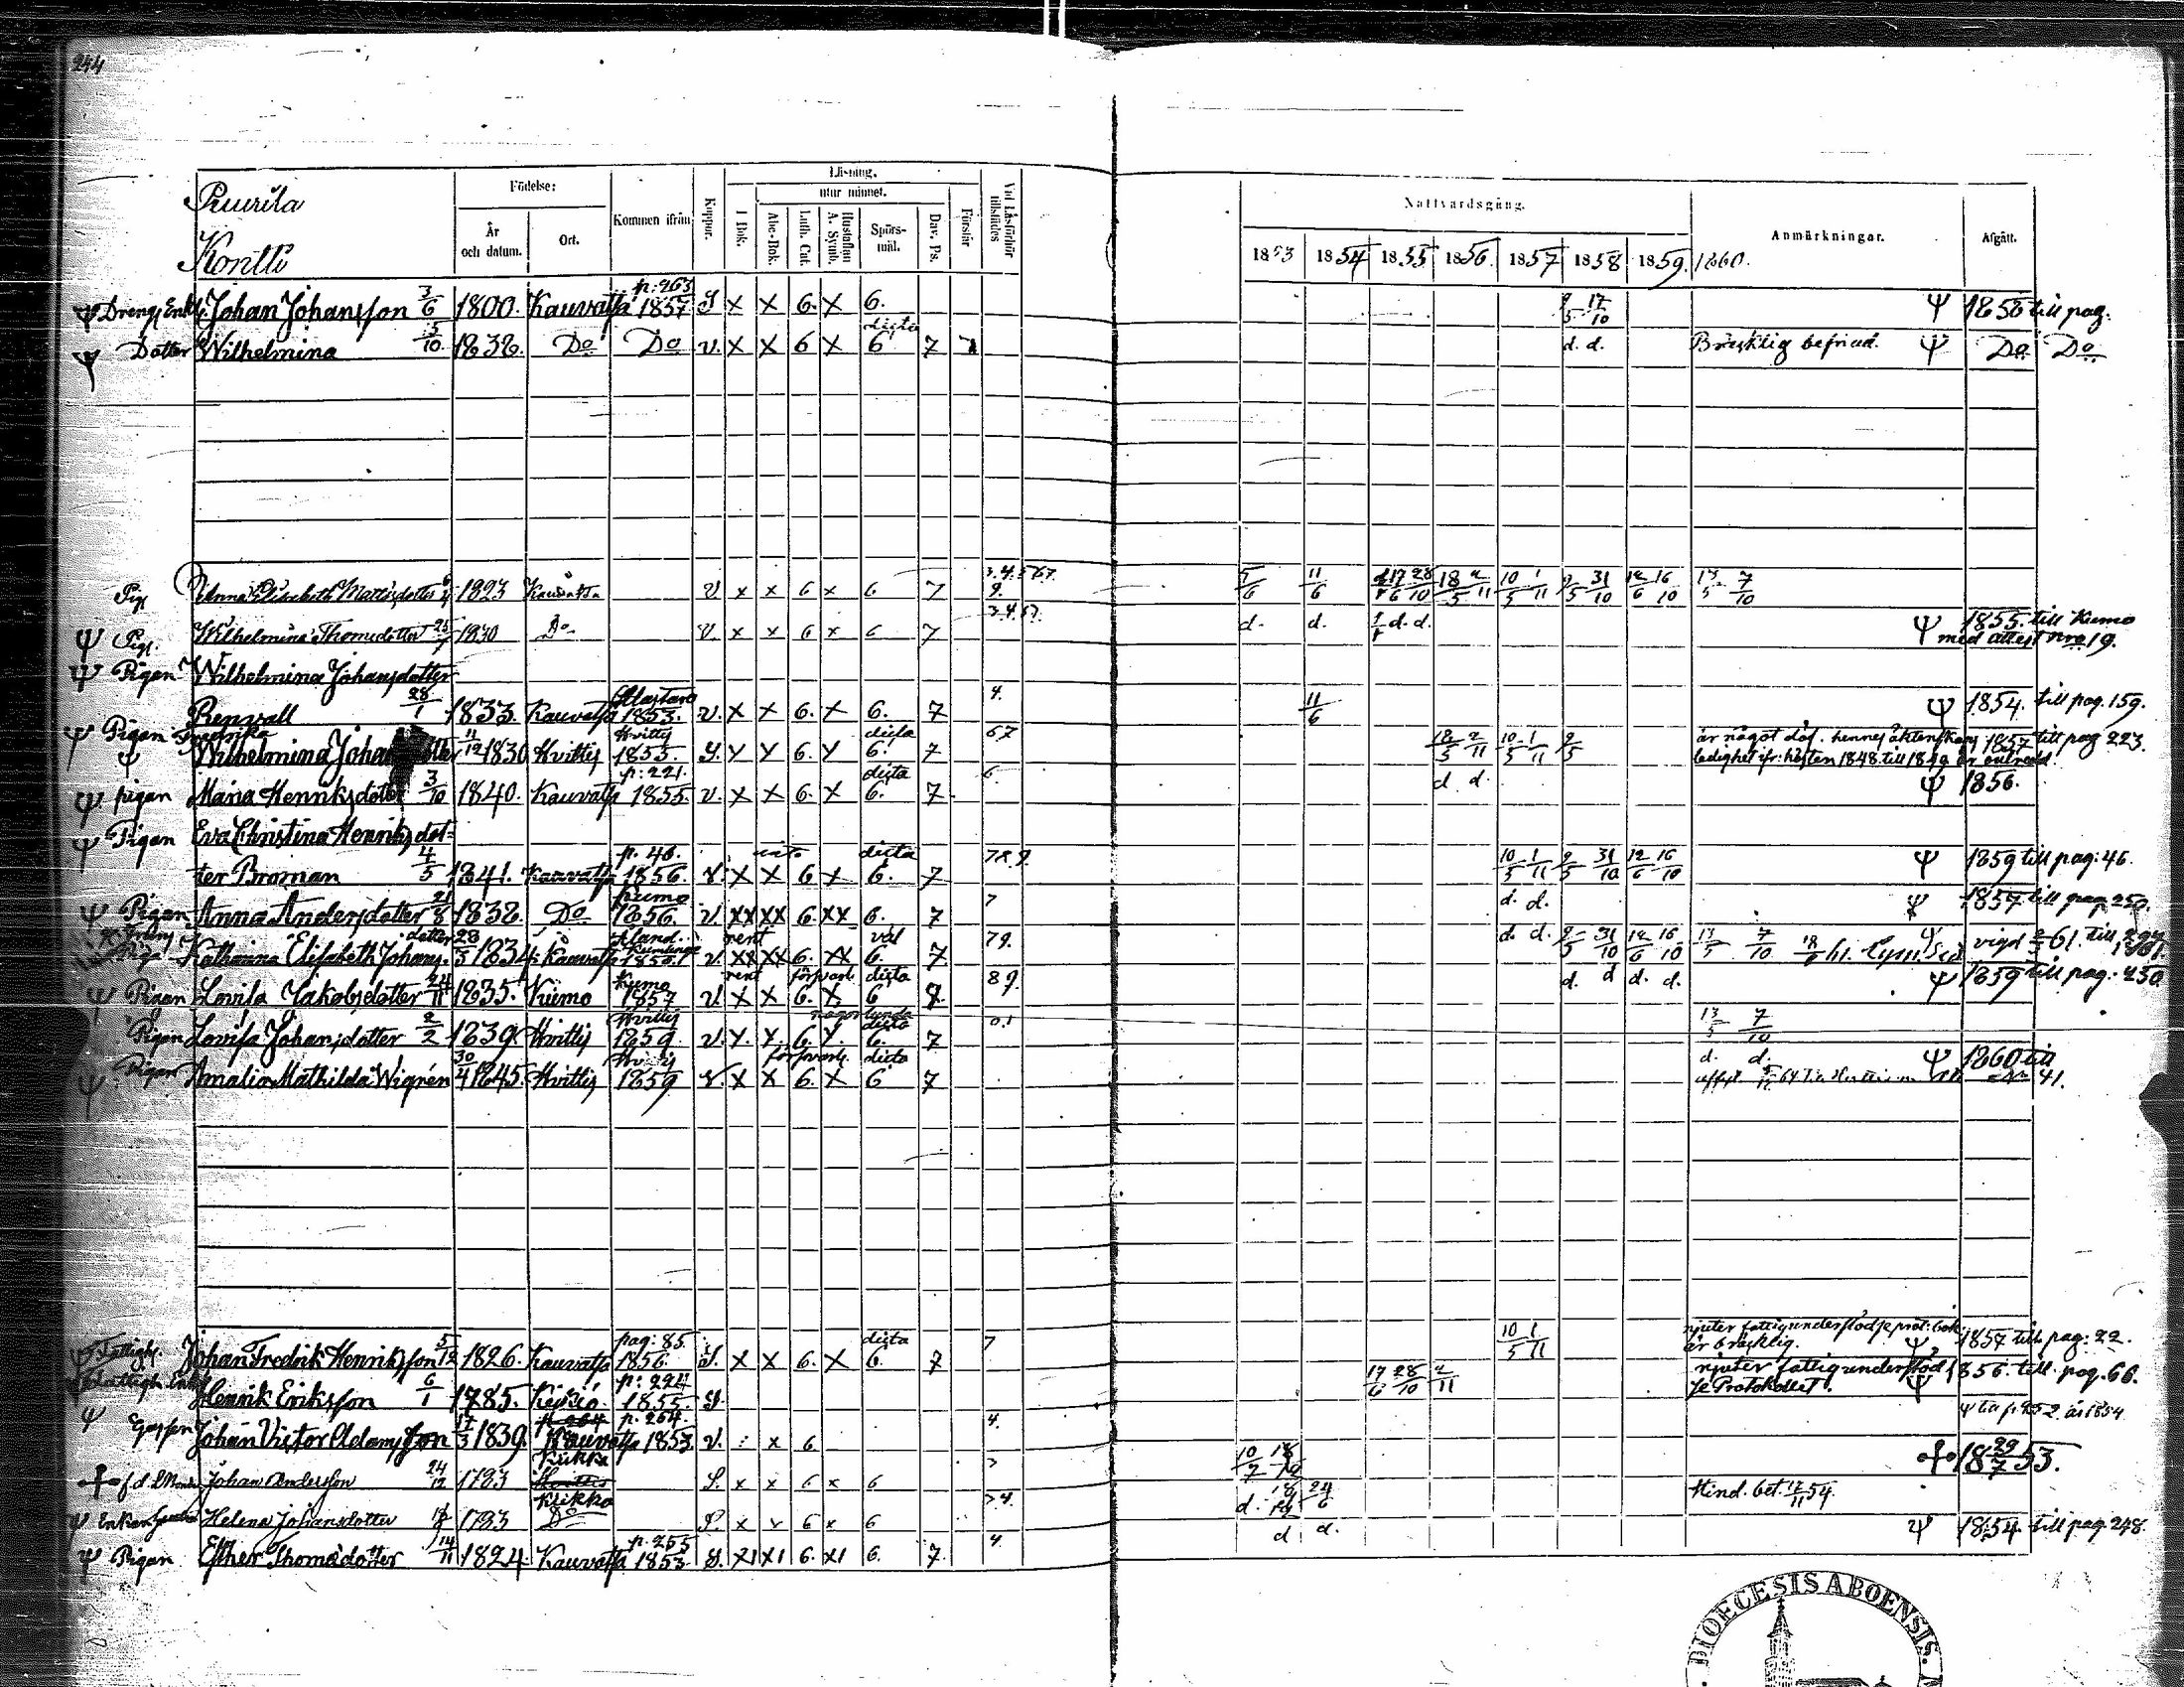 244
Puurila
Kontti
Födelse:
År och datum.
Ort.
Kommen ifrån
Koppor.
Läsning.
I Bok.
utur minnet.
Abc-Bok.
Luth. Cat.
Hustaflan A. Symb.
Spörs-mål.
Dav. Ps.
Förstår
Vid Läsförhör tillstädes
Nattvardsgång.
1853 1854 1855 1856. 1857 1858 1859. 1860.
Anmärkningar.
Afgått.
Ψ Dreng, Enkl. Johan Johansson 3/6 1800. Kauvatsa p: 263 1857 S x x 6. x 6. 17/10 Ψ 1858 till pag.
Ψ Dotter Wilhelmina 5/10. 1838. Do Do v. x x 6 x dicta 6 7 d. d. Bräcklig befriad. Ψ Do Do
Pig. Anna Elisabeth Mattsdotter 1823 Kauvatsa V x x 6 x 6 7 5/6 11/6 17/6 28/10 18/5 2/11 10/5 1/11 9/5 31/10 12/6 16/10 13/5 7/10
Ψ Pig. Wilhelmina Thomsdotter 25/7 1830 Do V. x x 6 x 6 7 d. d. d. d. Ψ 1855. till Kiumo
med attest nro 19.
Ψ Pigan Wilhelmina Johansdotter
Renvall 28/1 1833. Kauvatsa Alastaro 1853. v. x x 6. x 6. 7 4. 11/6 Ψ 1854. till pag. 159.
Ψ Pigan Fredrika
Wilhelmina Johansdotter 11/12 1830 Hvittis Hvittis 1855. S. x x 6. x dicta 6. 7 67 18/5 2/11 10/5 1/11 9/5 är något döf. hennes äktenskaps 1857 till pag 223.
ledighet ifr: hösten 1848 till 1849 är outredd.
Ψ pigan Maria Henriksdotter 3/10 1840. Kauvatsa p: 221. 1855. v. x x 6. x dicta 6. 7 6 d. d. Ψ 1856.
Ψ Pigan Eva Christina Henriksdot-
ter Broman 4/5 1841. Kauvatsa p. 46. 1856. V. x x 6 x dicta 6. 7 7.8.9 10/5 1/11 9/5 31/10 12/6 16/10 Ψ 1859 till pag: 46.
Ψ Pigan Anna Andersdotter 21/8 1838. Do Kiumo 1856. v. xx xx 6. xx 6. 7 7 d. d. Ψ 1857 till pag 250.
Piga Katharina Elisabeth Johans.dotter 28/5 1834. Kauvatsa v. xx xx 6. xx 6. 7 79. d. d. 9/5 31/10 12/6 16/10 13/5 7/10 vigd 61. till
Ψ Pigan Lovisa Jakobsdotter 24/11 1835. Kiumo Kiumo 1857 V. rent x x försvarl. 6. x dicta 6 8. 89. d. d d. d. Ψ 1859 till pag: 250
Pigan Lovisa Johansdotter 2/2 1839. Hvittis Hvittis 1859. v. x. x. 6 x. någorlunda dicta 6. 7 0.1 13/5 7/10
Ψ Pigan Amalia Mathilda Wigrén 30/4 1845. Hvittis Hvittis 1859 V. x x försvarl. 6. x dicta 6 7 d. d. Ψ 1860 till
41.
Ψ Fattigh. Johan Fredrik Henriksson 5/12 1826. Kauvatsa pag: 85. 1856. S. x x 6. x dicta 6. 7 7 10/5 1/11 njuter fattigunderstöd se prot: bok
är bräcklig. Ψ 1857 till pag: 22.
Fattigh Enkl Henrik Eriksson 6/1 1785. p: 224 1855. S 17/6 28/10 2/11 njuter fattigunderstöd
se Protokollet. Ψ 1856. till pag. 66.
Ψ Gossen Johan Victor Adamsson 17/3 1839. Kauvatsa p. 264. 1853. V. x 6 4. Ψ till p. 252 år 1854
f.d. Johan Andersson 24/12 1783 Kiikka S. x x 6 x 6 3 10/7 29/7 1853.
Ψ Enkan Helena Johansdotter 1783 Kiikka Do S. x x 6 x 6 34. d. 24/6 Hind. bet. 12/11 54.
Ψ Pigan Esther Thomsdotter 14/11 1824. Kauvatsa p. 255 1853 S. x1 x1 6. x1 6. 7. 4. d d. Ψ 1854. till pag. 248.
DIOECESIS ABOENSIS.